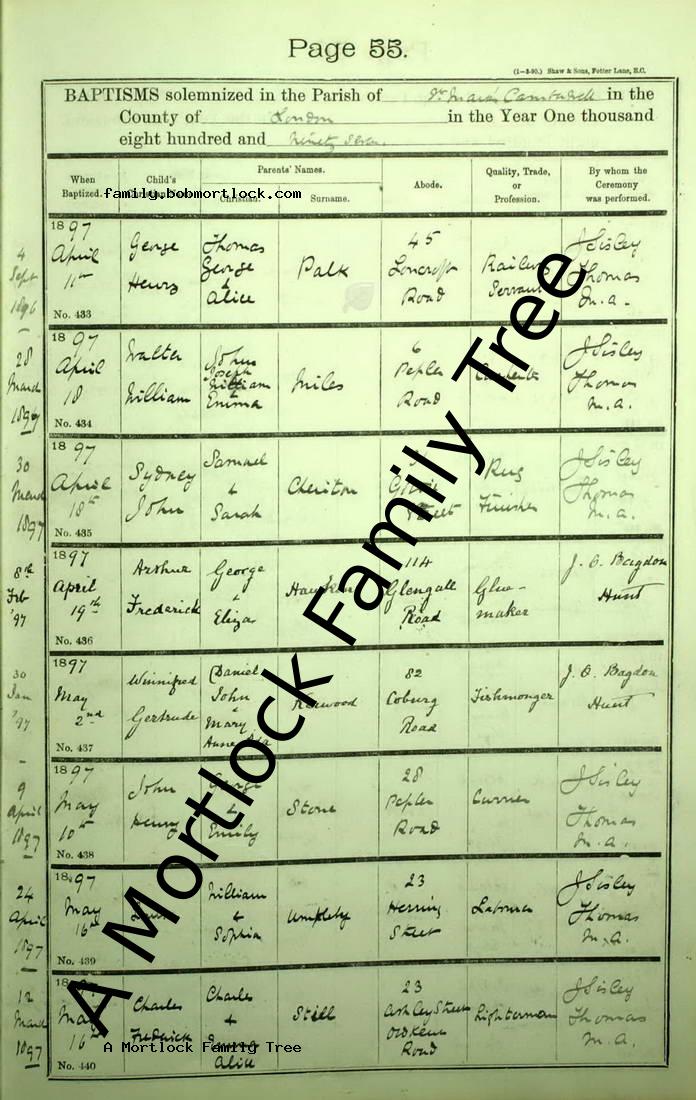 Page 55.
(1—3-90.) Shaw & Sons, Fetter Lane, E.C.
BAPTISMS solemnized in the Parish of St. Mark's Camberwell in the
County of London in the Year One thousand
eight hundred and ninety seven.
When Baptized.
Child's
Parents' Names.
Christian.
Surname.
Abode.
Quality, Trade, or Profession.
By whom the Ceremony was performed.
family.bobmortlock.com
4
Sept
1896
1897
April
11th
No. 433
George
Henry
Thomas
George
&
Alice
Palk
45
Loncroft
Road
Railway
Servant
J Sisley
Thomas
M.A.
28
March
1897
1897
April
18
No. 434
Walter
William
John
Joseph
William
&
Emma
Miles
6
Pepler
Road
J Sisley
Thomas
M.A.
30
March
1897
1897
April
18th
No. 435
Sydney
John
Samuel
&
Sarah
Cheriton
Street
Rug
Finisher
J Sisley
Thomas
M.A.
8th
Feb
'97
1897
April
19th
No. 436
Arthur
Frederick
George
&
Eliza
114
Glengall
Road
Glue-
maker
J. O. Bagdon
Hunt
30
Jan
'97
1897
May
2nd
No. 437
Winnifred
Gertrude
Daniel
John
Mary
Anne
82
Coburg
Road
Fishmonger
J. O. Bagdon
Hunt
9
April
1897
1897
May
10th
No. 438
John
Henry
George
&
Emily
Stone
28
Pepler
Road
Currier
J Sisley
Thomas
M.A.
24
April
1897
1897
May
16th
No. 439
William
&
Sophia
Umpleby
23
Herring
Street
Labourer
J Sisley
Thomas
M.A.
12
March
1897
1897
May
16th
No. 440
Charles
Frederick
Charles
&
Alice
Still
23
Ashley Street
Old Kent
Road
Lighterman
J Sisley
Thomas
M.A.
A Mortlock Family Tree
A Mortlock Family Tree